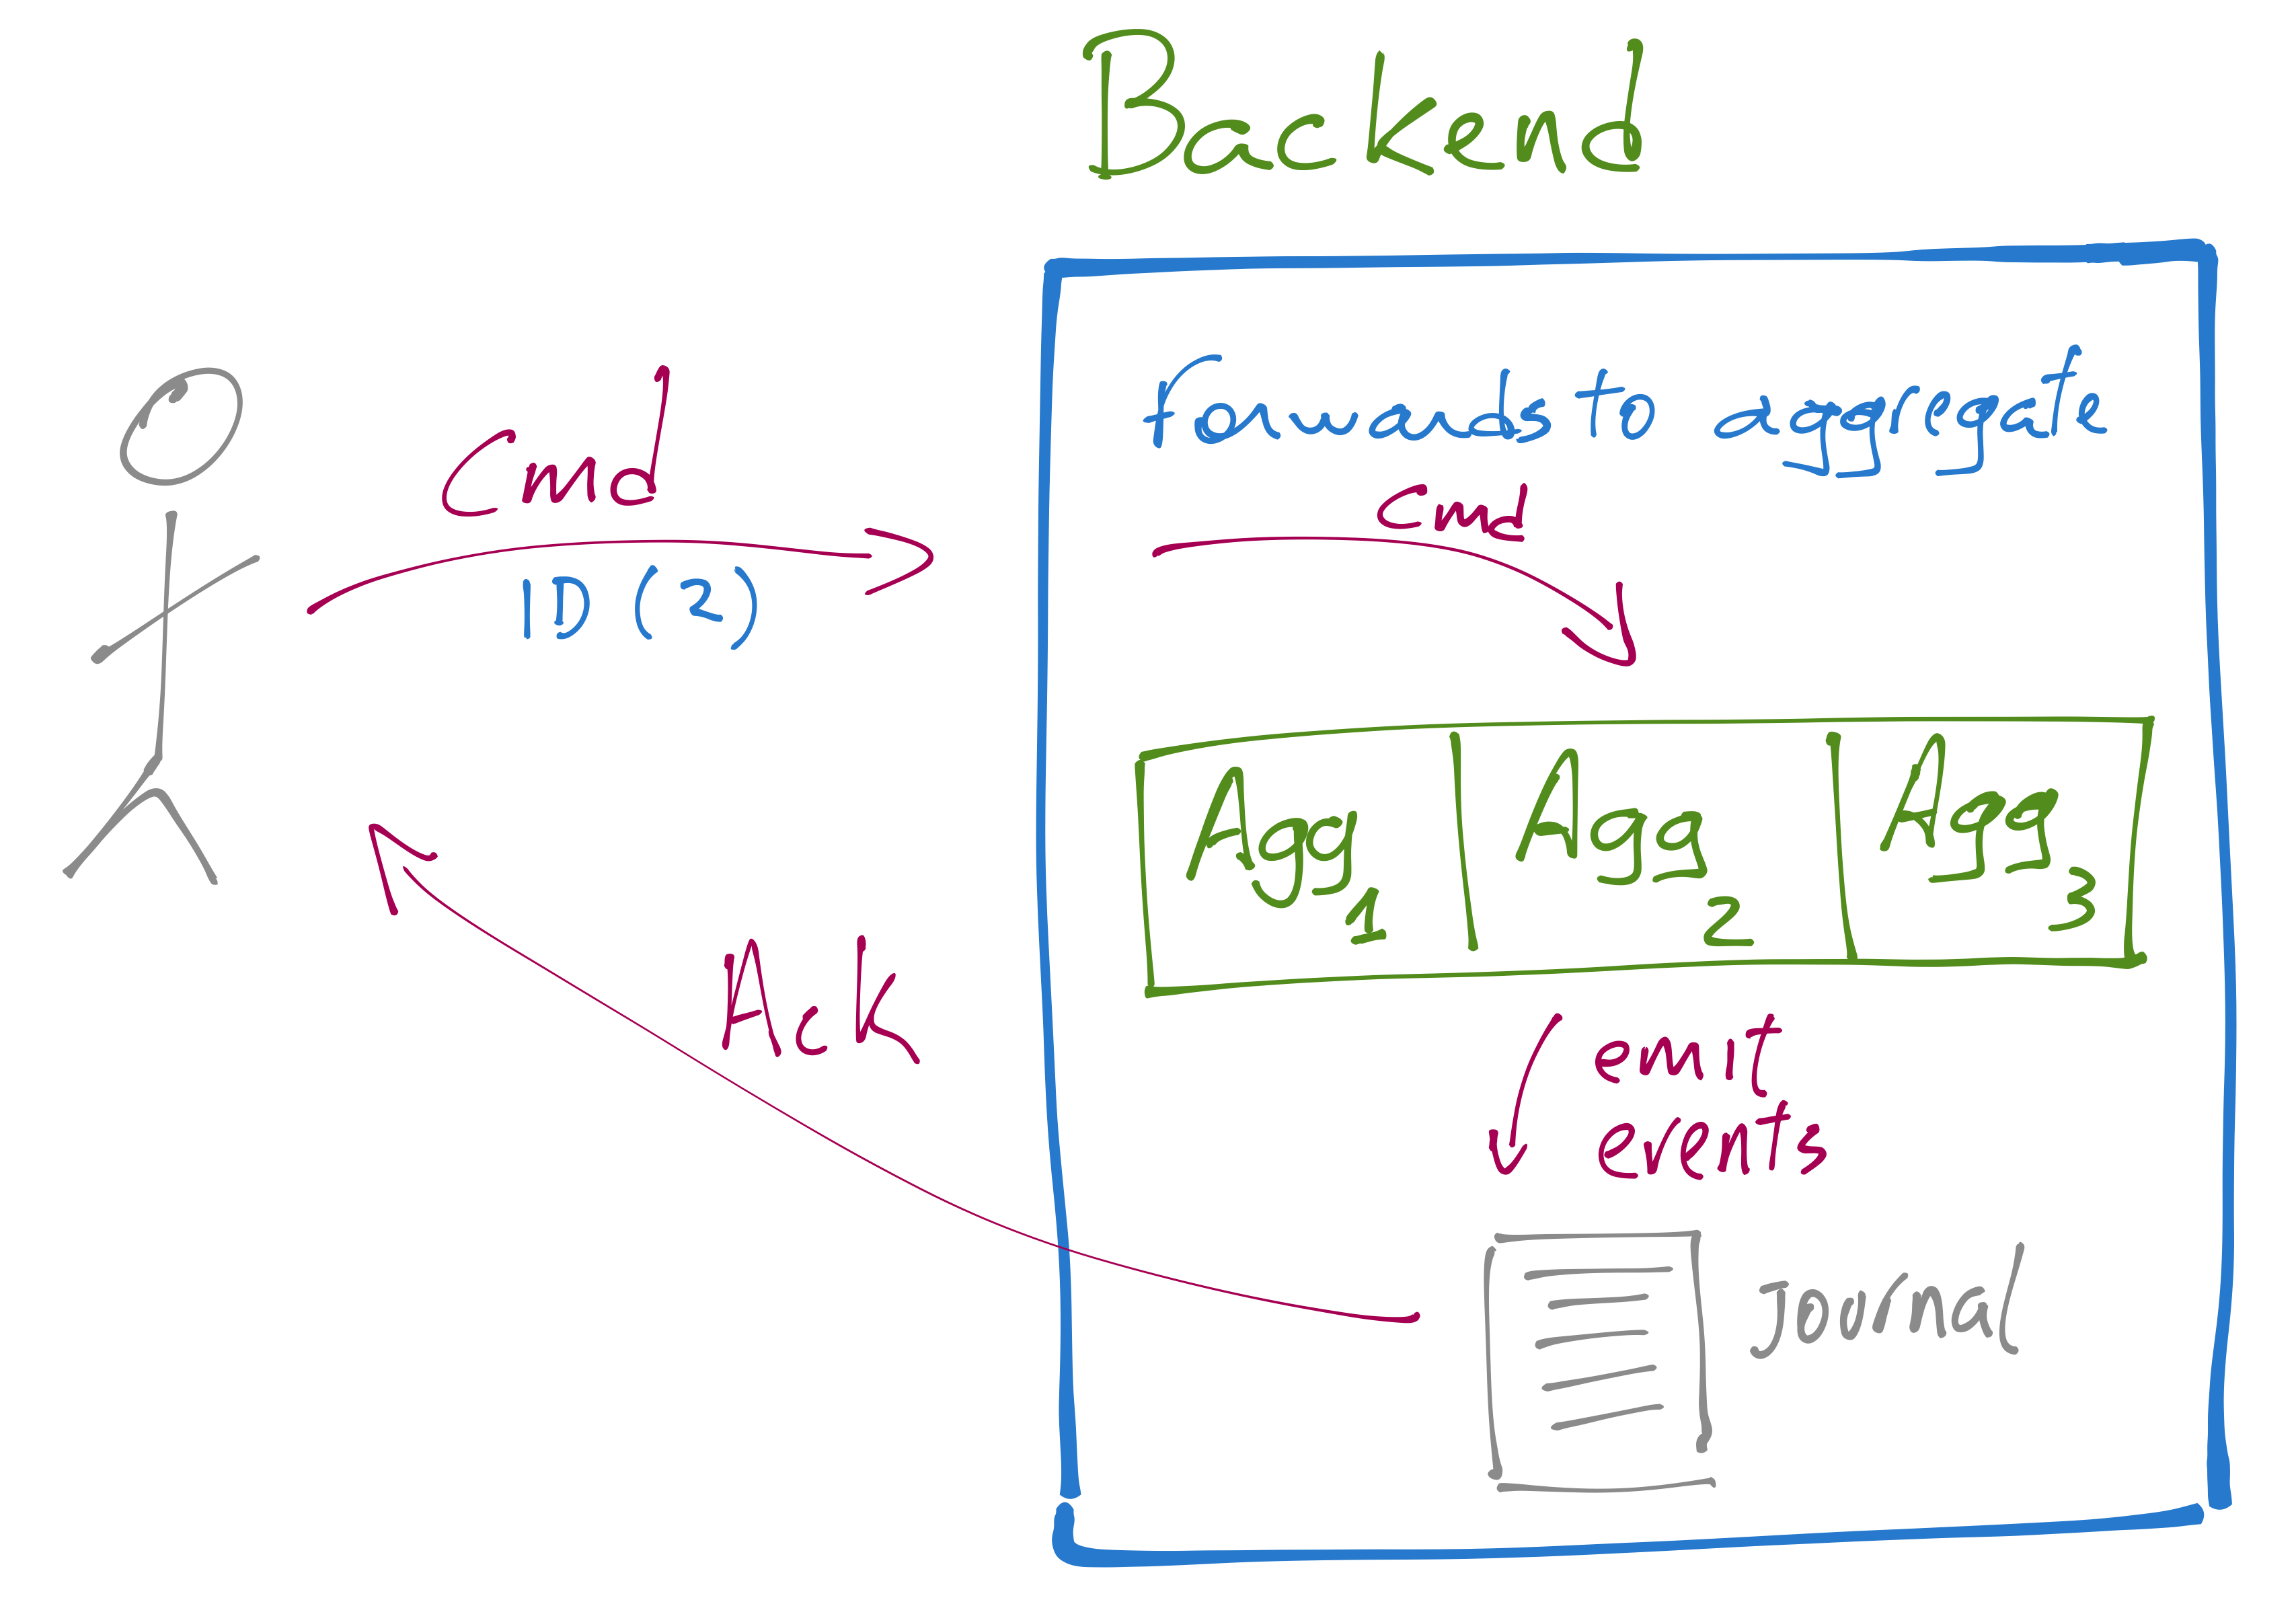 Backend
Cmd
ID (2)
forwards to aggregate
cmd
Agg 1
Agg 2
Agg 3
Ack
emit
events
Journal